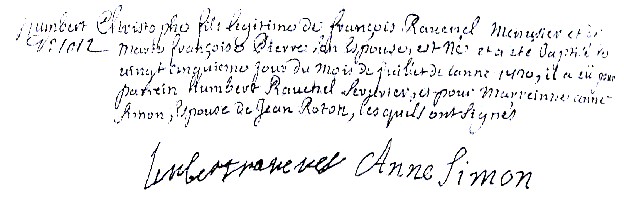 Humbert Christophe fils legitime de françois Rauenel Menusier et de
Marie françoise Pierre son Espouse, est Né et a été baptisé le
vingt cinquieme jour du mois de juillet de l'anne il a eü pour
parrein humbert Rauenel Serurier, et pour Marreinne anne
Simon, Espouse de Jean Roton, lesquells ont signés
Anne Simon